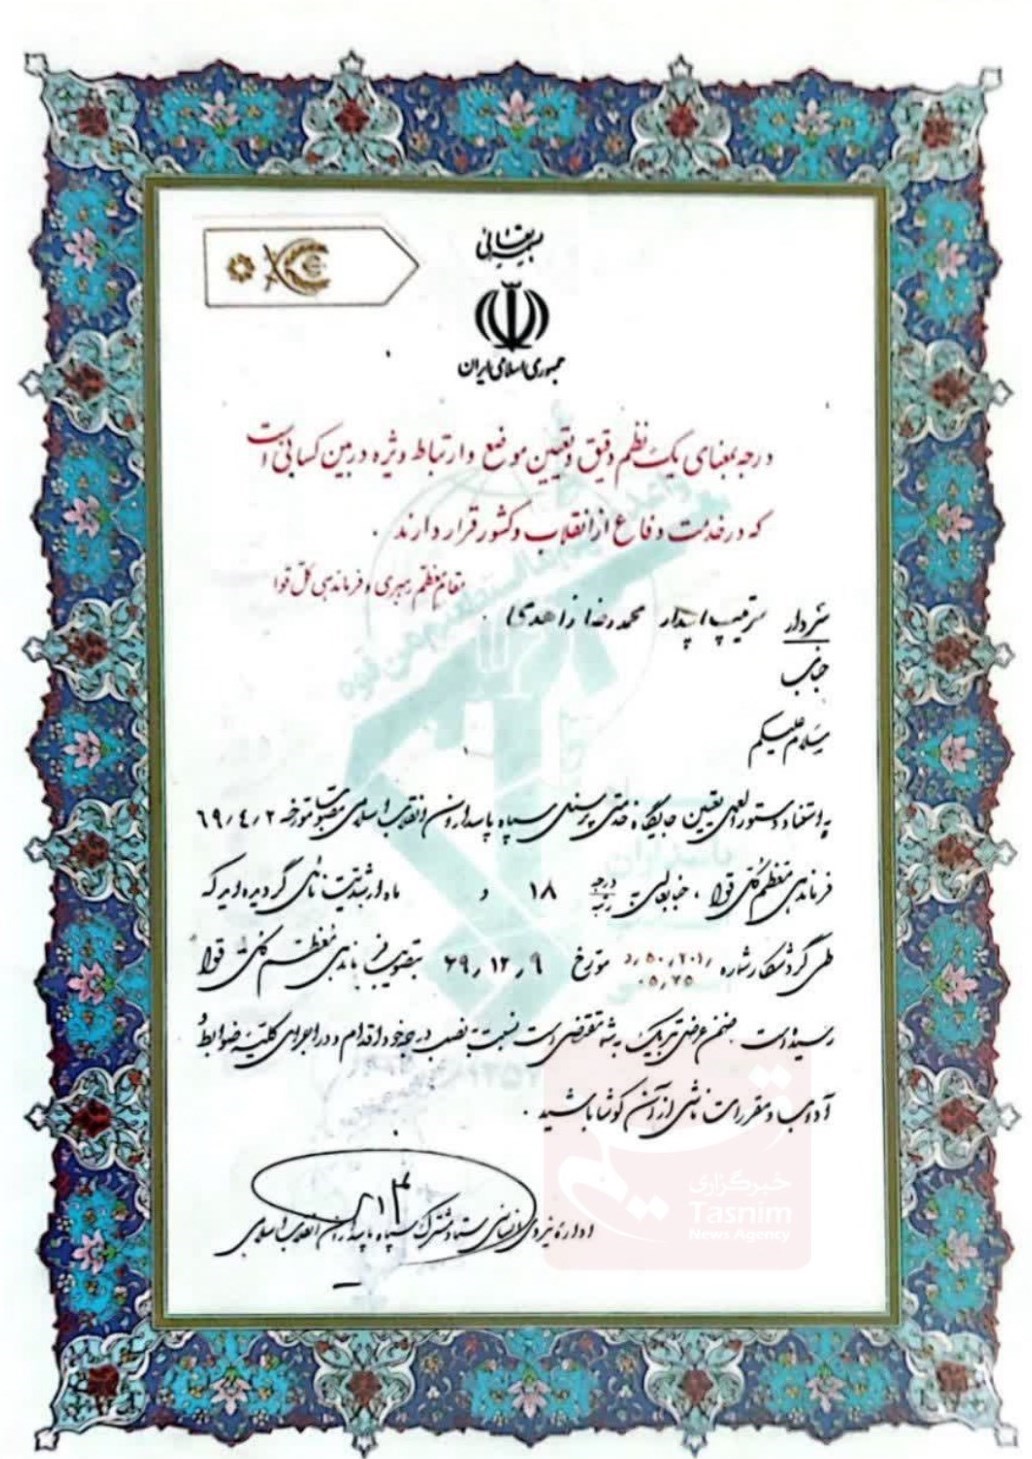 بسمه تعالی
جمهوری اسلامی ایران
درجه بمعنای یک نظم دقیق و تعیین موضع و ارتباط ویژه در بین کسانی است
که در خدمت دفاع از انقلاب و کشور قرار دارند .
مقام معظم رهبری و فرماندهی کل قوا
سردار سرتیپ پاسدار محمدرضا زاهدی
جناب
سلام علیکم
به استناد دستورالعمل تعیین جایگاه خدمتی پرسنلی سپاه پاسداران انقلاب اسلامی مصوبات مورخه ۶۹٫۴٫۲
فرماندهی معظم کل قوا ، جنابعالی به درجه رتبه ۱۸ و ماه ارشدیت نائل گردیده‌اید که
طی گردشکار شماره مورخ ۶۹٫۱۲٫۹ بتصویب فرماندهی معظم کل قوا
رسیده است . ضمن عرض تبریک به شما مقتضی است نسبت به نصب درجه خود اقدام و در اجرای کلیه ضوابط و
آداب و مقررات ناشی از آن کوشا باشید .
اداره نیروی انسانی ستاد مشترک سپاه پاسداران انقلاب اسلامی
خبرگزاری
Tasnim
News Agency